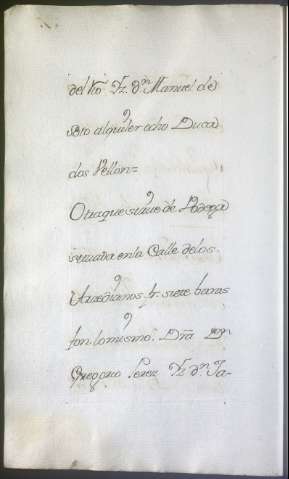 del Rio Vz. Dn. Manuel de
Soto alquiler ocho Duca
dos Vellon=
Otra que sirue de Bodega
situada en la Calle delos
fr. siete baras
fon. lo mismo. Dra. Dn.
Gregorio Perez Vz. Dn. Ja-